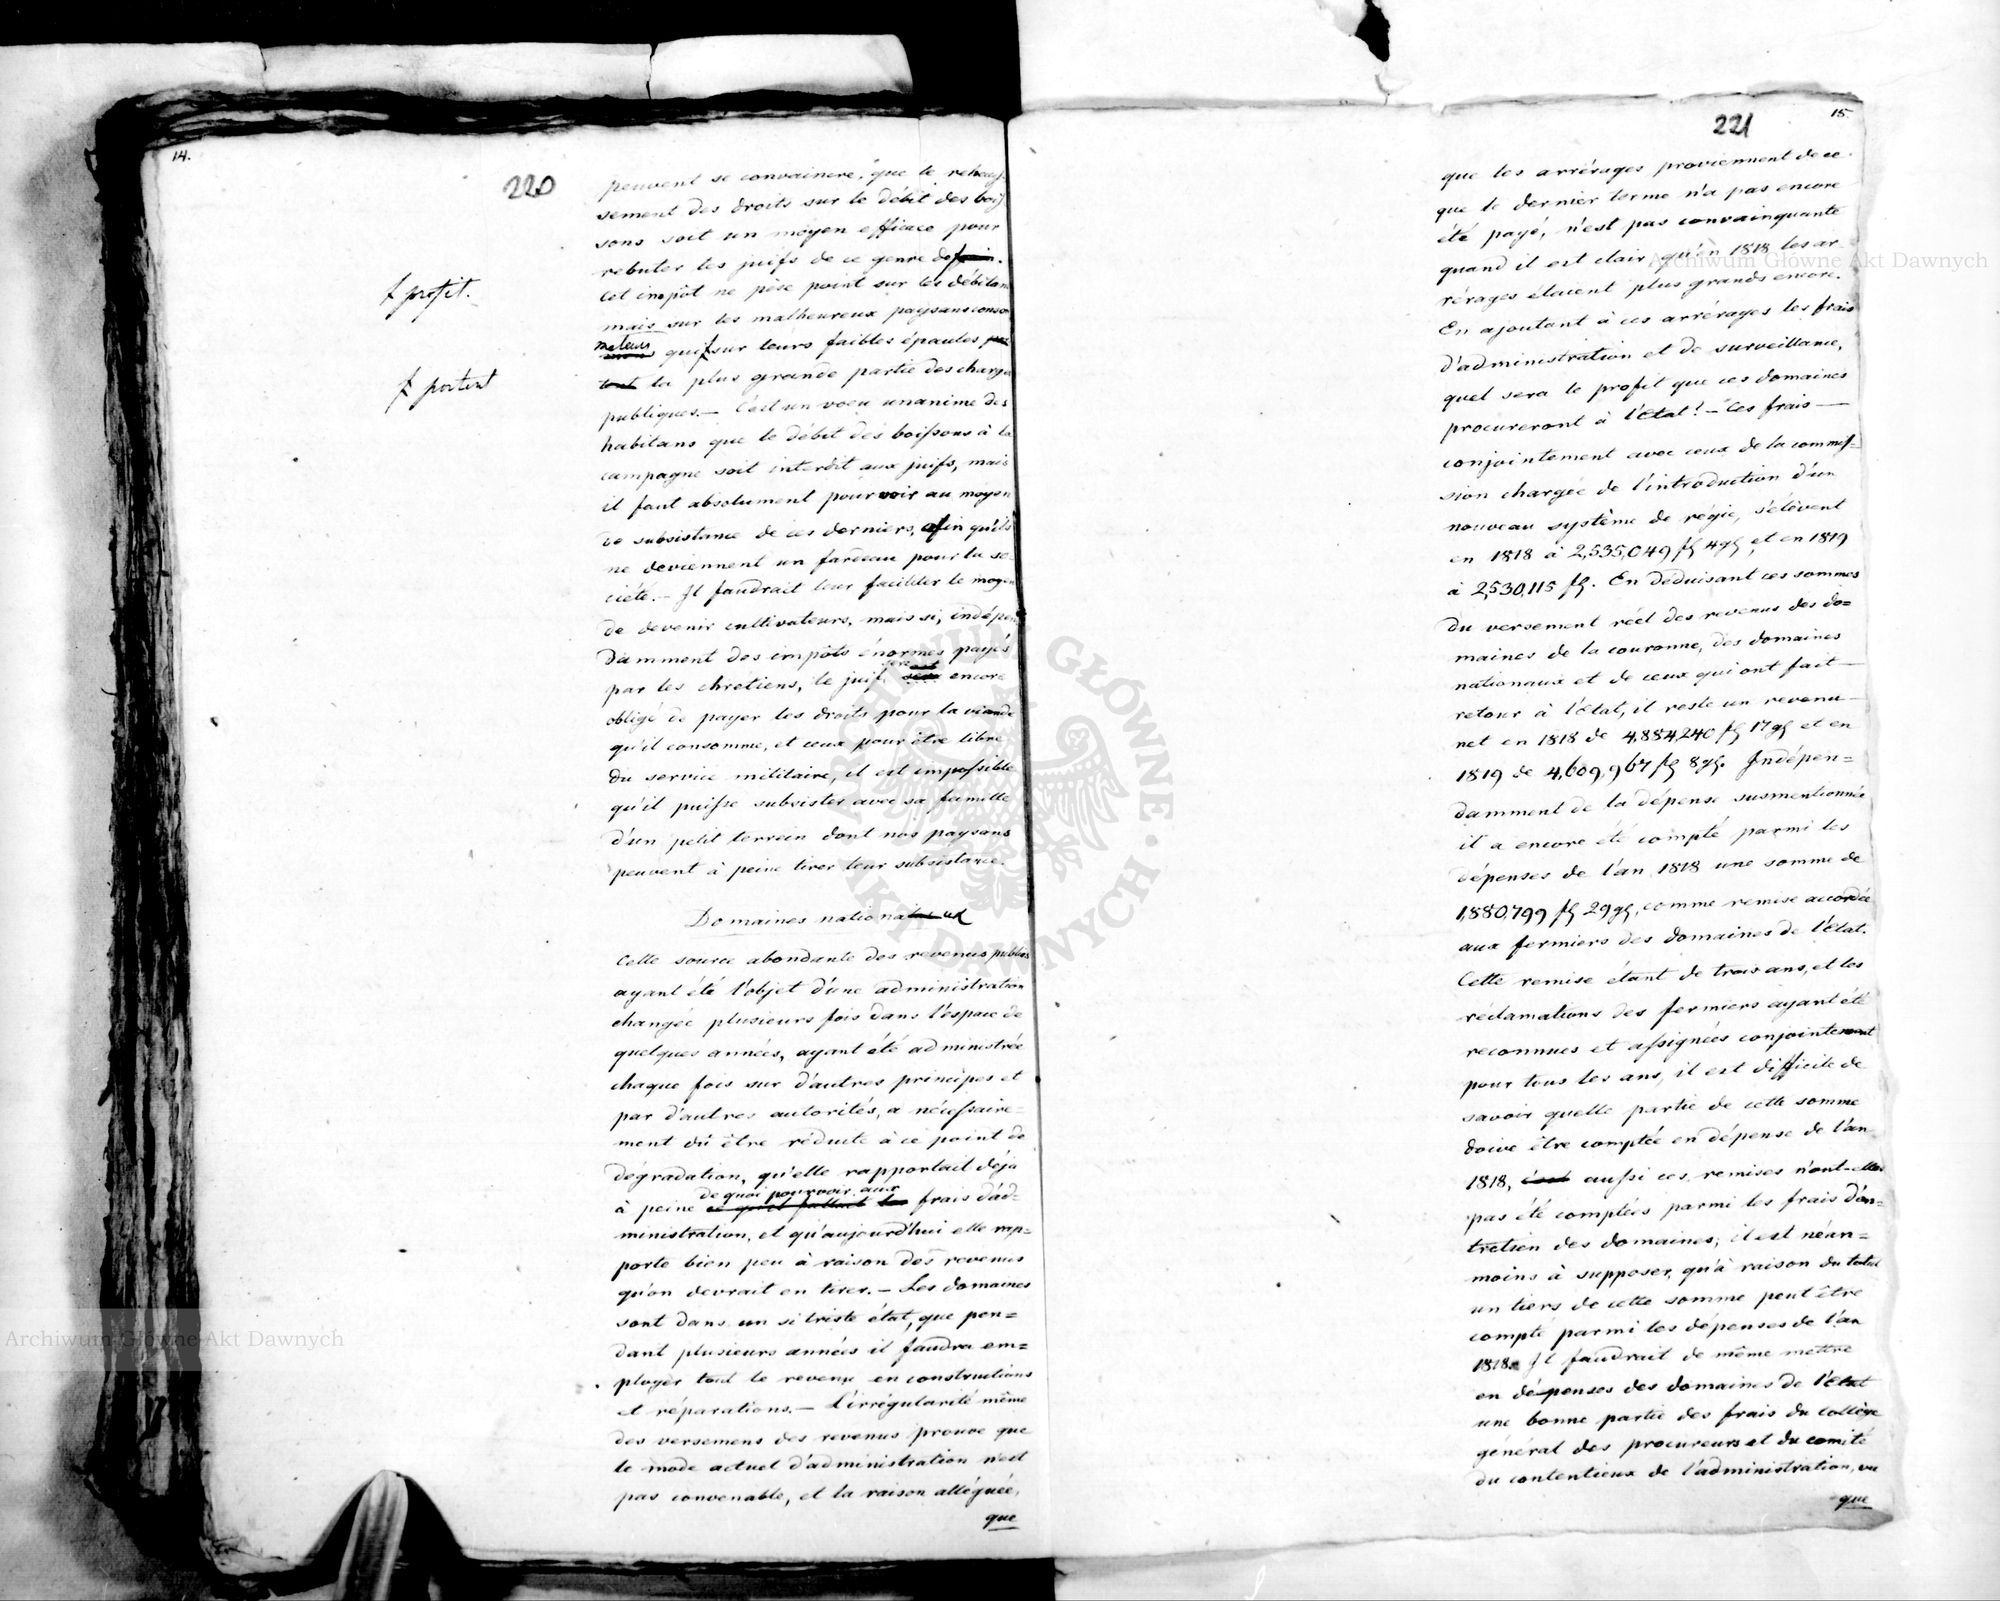 14.
220
peuvent se convaincre, que le rehauſ-
sement des droits sur le débit des boiſ-
sons soit un moyen efficace pour
rebuter les juifs de ce genre de
Cet impôt ne pèse point sur les débitans
mais sur les malheureux paysans conso-
mateurs qui sur leurs faibles épaules
la plus grande partie des charges
publiques. — C'est un voeu unanime des
habitans que le débit des boiſsons à la
campagne soit interdit aux juifs, mais
il faut absolument pourvoir au moyen
de subsistance de ces derniers, afin qu'ils
ne deviennent un fardeau pour la so-
ciété. — Il faudrait leur faciliter le moyen
de devenir cultivateurs, mais si, indépen-
damment des impôts énormes payés
par les chretiens, le juif encore
obligé de payer les droits pour la viande
qu'il consomme, et ceux pour être libre
du service militaire, il est impoſsible
qu'il puiſse subsister avec sa famille
d'un petit terrein dont nos paysans
peuvent à peine tirer leur subsistance.
ƒ profit.
ƒ portent
Domaines nationaux
Cette source abondante des revenus publics
ayant été l'objet d'une administration
changée plusieurs fois dans l'éspace de
quelques années, ayant été administrée
chaque fois sur d'autres principes et
par d'autres autorités, a néceſsaire=
ment dû être réduite à ce point de
dégradation, qu'elle rapportait déja
de quoi pourvoir aux
à peine ce qu'il fallait les frais d'ad=
ministration, et qu'aujourd'hui elle rap=
porte bien peu à raison des revenus
qu'on devrait en tirer. — Les domaines
sont dans un si triste état, que pen=
dant plusieurs années il faudra em=
ployer tout le revenu en constructions
et réparations. — L'irrégularité même
des versemens des revenus prouve que
le mode actuel d'administration n'est
pas convenable, et la raison alléguée,
que
221
15.
que les arrérages proviennent de ce
que le dernier terme n'a pas encore
été payé, n'est pas convainquante
quand il est clair qu'en 1818 les ar-
rérages étaient plus grands encore.
En ajoutant à ces arrérages les frais
d'administration et de surveillance,
quel sera le profit que ces domaines
procureront à l'état? — Ces frais —
conjointement avec ceux de la commiſ=
sion chargée de l'introduction d'un
nouveau système de régie, s'élèvent
en 1818 à 2,535,049 fl 4 gl, et en 1819
à 2,530,115 fl. En déduisant ces sommes
du versement réel des revenus des do=
maines de la couronne, des domaines
nationaux et de ceux qui ont fait —
retour à l'état, il reste un revenu —
net en 1818 de 4,884,240 fl 17 gl et en
1819 de 4,609,967 fl 8 gl. Indépen=
damment de la dépense susmentionnée
il a encore été compté parmi les
dépenses de l'an 1818 une somme de
1,880,799 fl 29 gl, comme remise accordée
aux fermiers des domaines de l'état.
Cette remise étant de trois ans, et les
réclamations des fermiers ayant été
reconnues et aſsignées conjointement
pour tous les ans, il est difficile de
savoir quelle partie de cette somme
doive être comptée en dépense de l'an
1818, auſsi ces remises n'ont-elles
pas été comptées parmi les frais d'en=
tretien des domaines; il est néan=
moins à supposer, qu'à raison du total
un tiers de cette somme peut être
compté parmi les dépenses de l'an
1818. Il faudrait de même mettre
en dépenses des domaines de l'état
une bonne partie des frais du collège
général des procureurs et du comité
du contentieux de l'administration, vu
que
Archiwum Główne Akt Dawnych
Archiwum Główne Akt Dawnych
ARCHIWUM GŁÓWNE AKT DAWNYCH